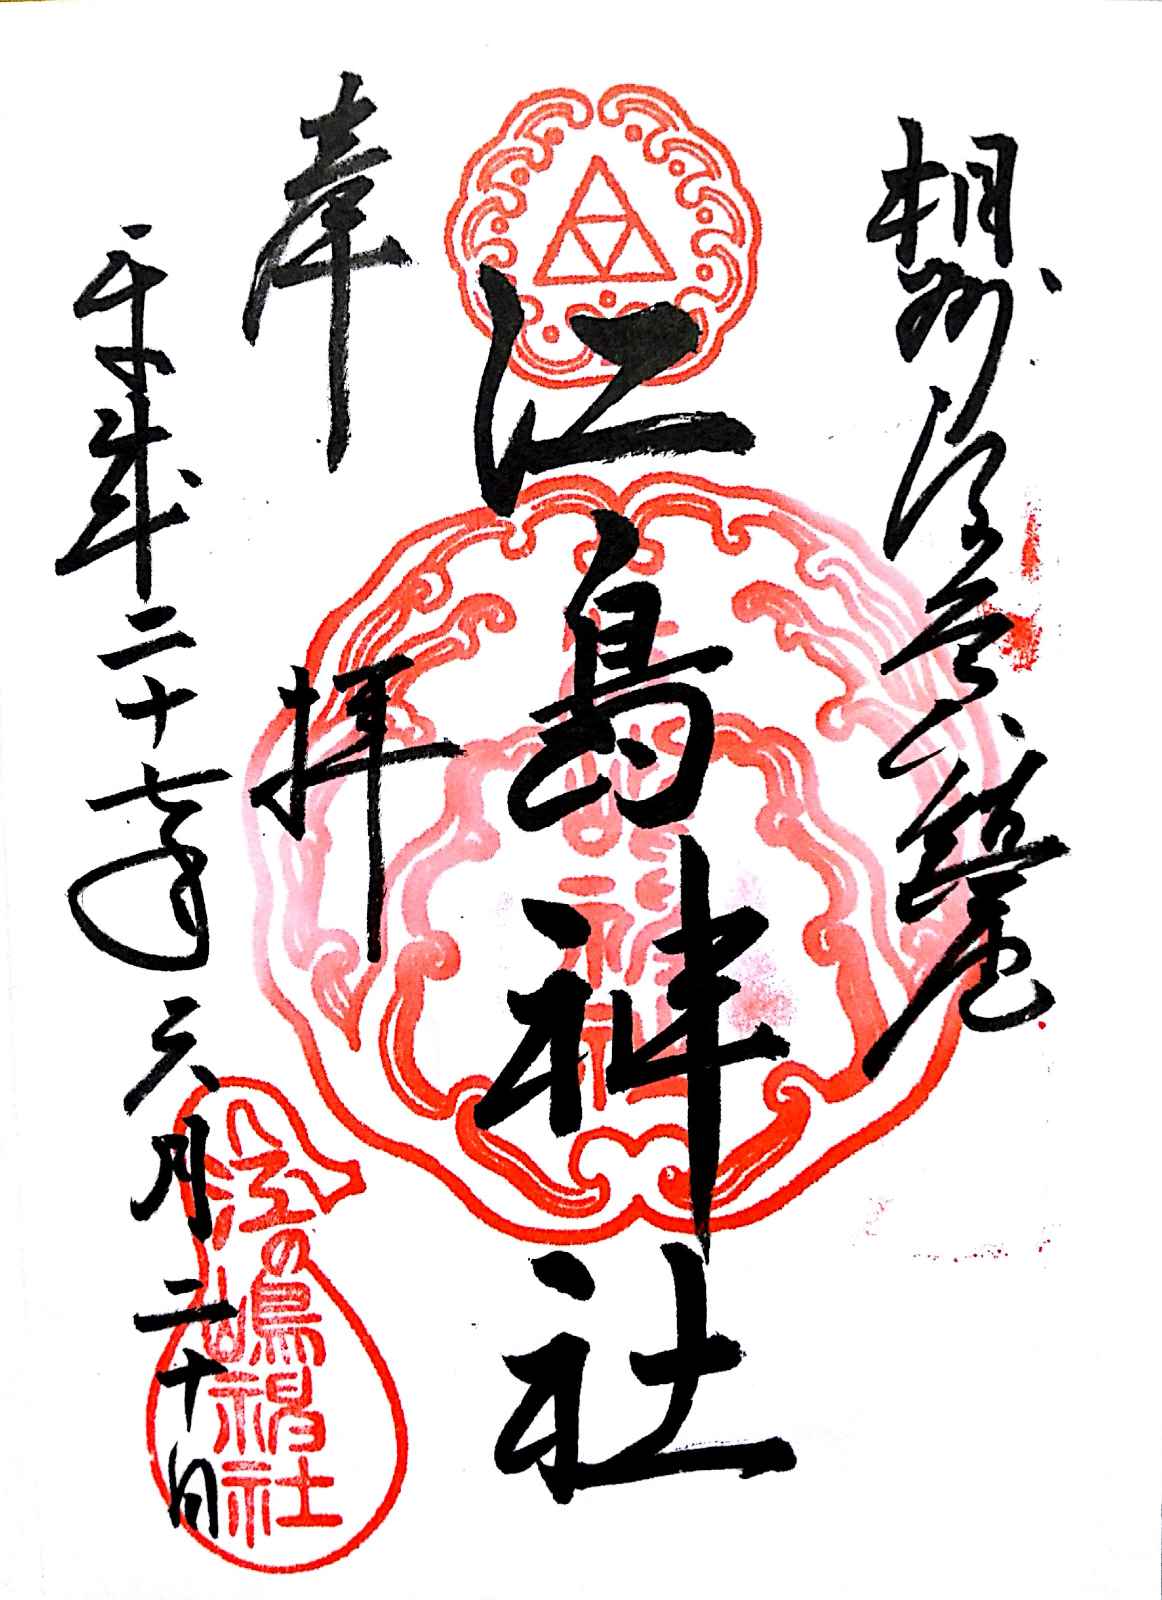 相州 鎮座
江島神社
奉拝
平成二十七年六月二十日
江の嶋神社